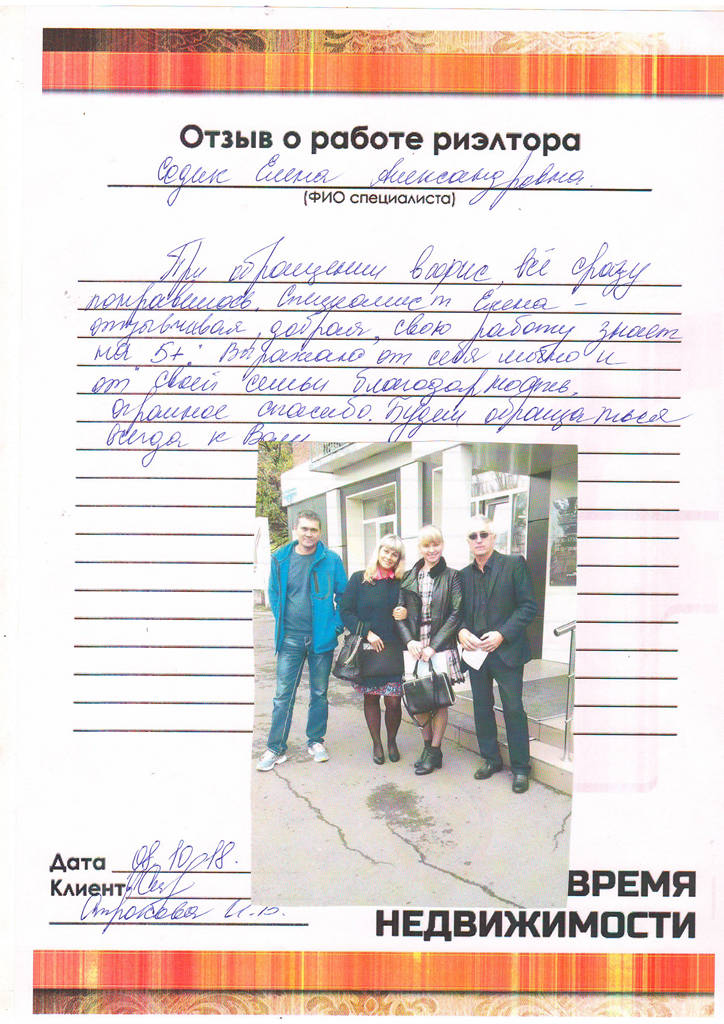 Отзыв о работе риэлтора
Содик Елена Александровна.
(ФИО специалиста)
При обращении в офис, всё сразу
понравилось. Специалист Елена -
отзывчивая, добрая, свою работу знает
на "5+". Выражаю от себя лично и
от своей семьи благодарность,
огромное спасибо. Будем обращаться
всегда к Вам
Дата 08.10.18.
Клиент
И.В.
ВРЕМЯ
НЕДВИЖИМОСТИ